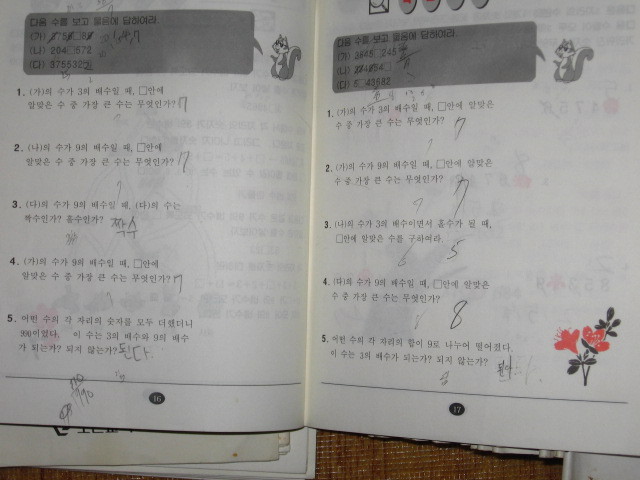 다음 수를 보고 물음에 답하여라.
(가)
(나) 204□572
(다) 375532
1. (가)의 수가 3의 배수일 때, □안에
알맞은 수 중 가장 큰 수는 무엇인가? 7
2. (나)의 수가 9의 배수일 때, □안에
알맞은 수 중 가장 큰 수는 무엇인가? 7
3. (다)의 수가 9의 배수일 때, (다)의 수는
짝수인가? 홀수인가? 짝수
4. (가)의 수가 9의 배수일 때, □안에
알맞은 수 중 가장 큰 수는 무엇인가? 7
5. 어떤 수의 각 자리의 숫자를 모두 더했더니
이었다. 이 수는 3의 배수와 9의 배수
가 되는가? 되지 않는가? 된다.
16
다음 수를 보고 물음에 답하여라.
(가) 3645□245
(나)
(다) 5□43582
1. (가)의 수가 3의 배수일 때, □안에 알맞은
수 중 가장 큰 수는 무엇인가?
7
2. (가)의 수가 9의 배수일 때, □안에 알맞은
수 중 가장 큰 수는 무엇인가?
7
3. (나)의 수가 3의 배수이면서 홀수가 될 때,
□안에 알맞은 수를 구하여라.
5
4. (다)의 수가 9의 배수일 때, □안에 알맞은
수 중 가장 큰 수는 무엇인가?
8
5. 어떤 수의 각 자리의 합이 9로 나누어 떨어졌다.
이 수는 3의 배수가 되는가? 되지 않는가?
17